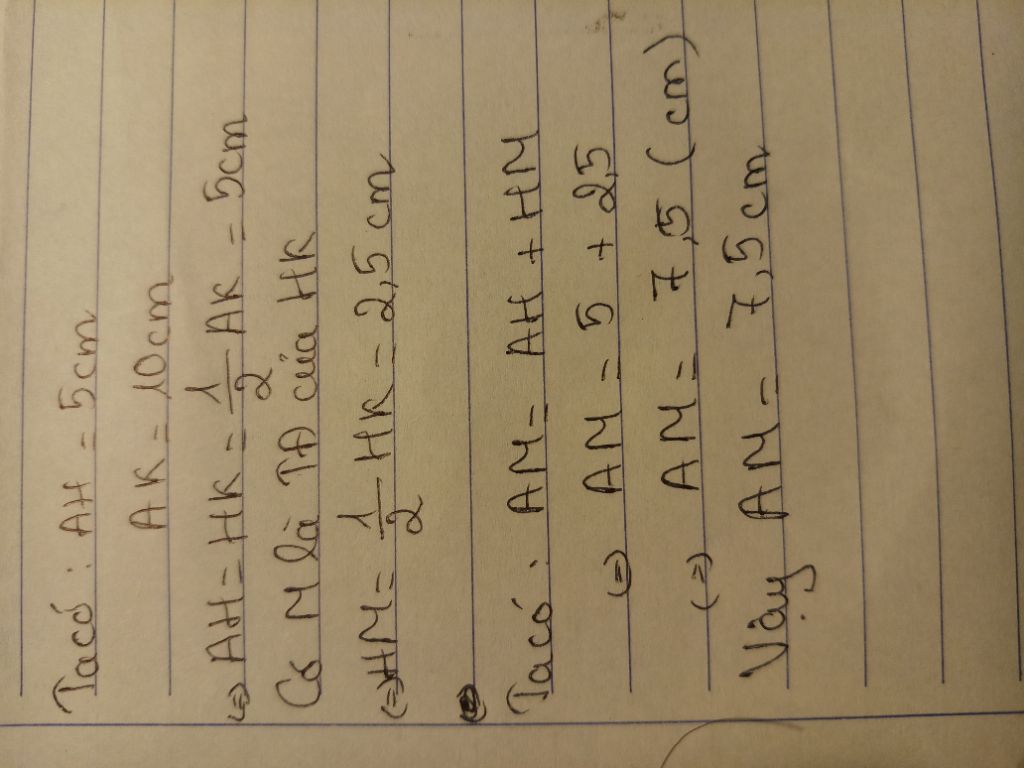 Ta có : AH = 5cm
AK = 10cm
(=) AH = HK = 1/2 AK = 5cm
Có M là TĐ của HK
(=) HM = 1/2 HK = 2,5 cm
Ta có : AM = AH + HM
(=) AM = 5 + 2,5
(=) AM = 7,5 (cm)
Vậy AM = 7,5 cm